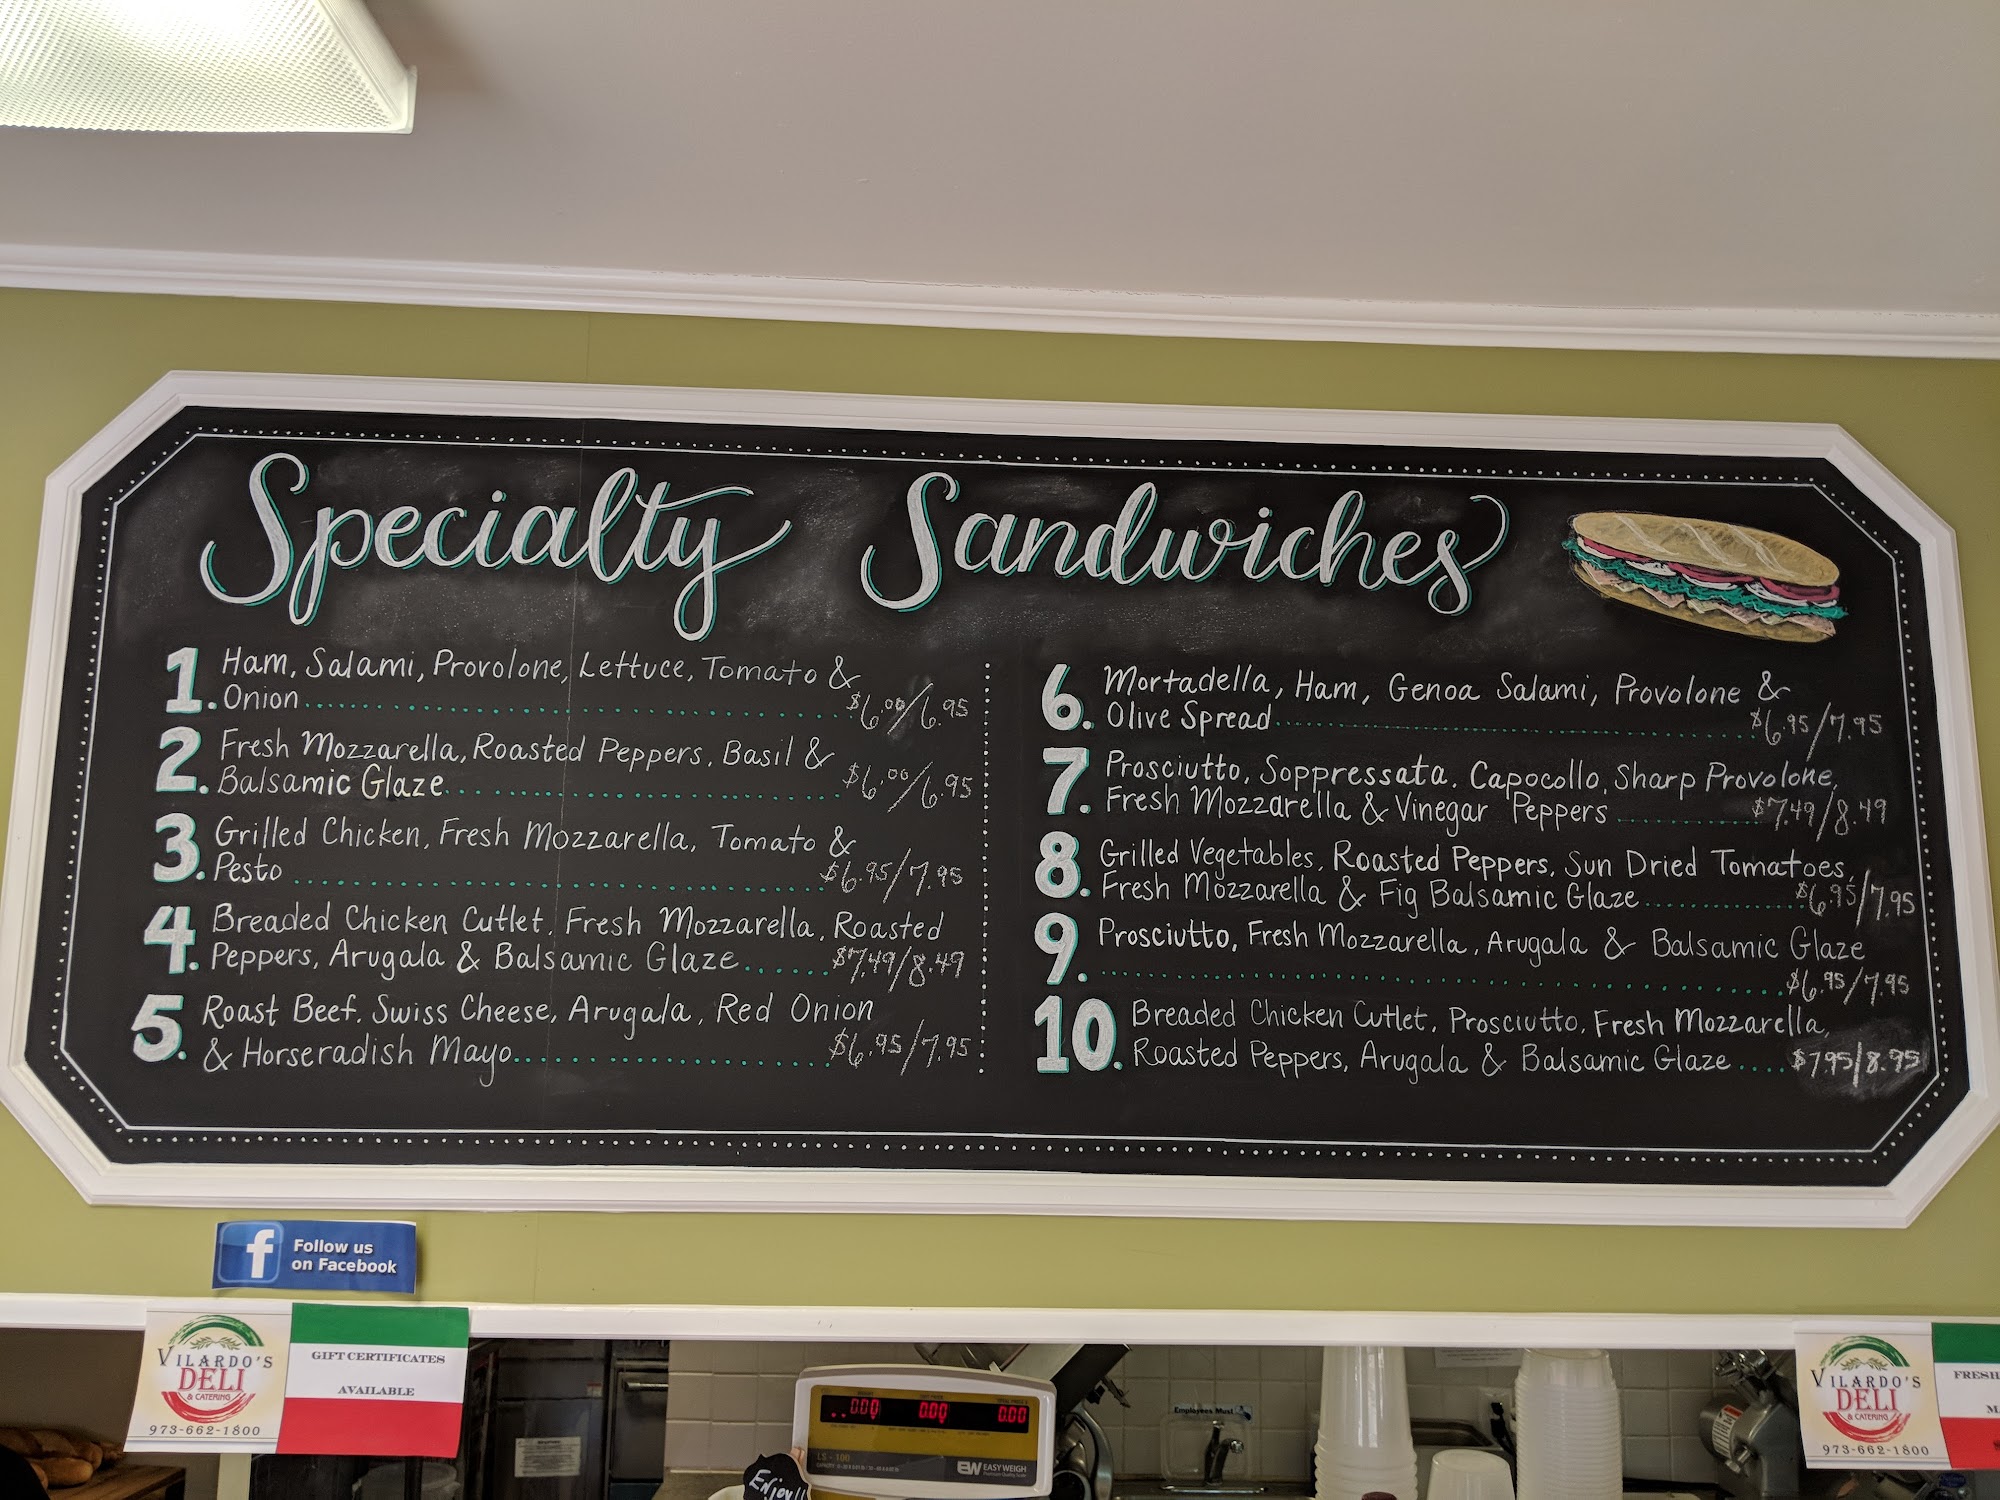 Specialty Sandwiches
1. Ham, Salami, Provolone, Lettuce, Tomato &
Onion.......... $6.00/6.95
2. Fresh Mozzarella, Roasted Peppers, Basil &
Balsamic Glaze.......... $6.00/6.95
3. Grilled Chicken, Fresh Mozzarella, Tomato &
Pesto .......... $6.95/7.95
4. Breaded Chicken Cutlet, Fresh Mozzarella, Roasted
Peppers, Arugala & Balsamic Glaze...... $7.49/8.49
5. Roast Beef, Swiss Cheese, Arugala, Red Onion
& Horseradish Mayo.......... $6.95/7.95
6. Mortadella, Ham, Genoa Salami, Provolone &
Olive Spread.......... $6.95/7.95
7. Prosciutto, Soppressata, Capocollo, Sharp Provolone,
Fresh Mozzarella & Vinegar Peppers .......... $7.49/8.49
8. Grilled Vegetables, Roasted Peppers, Sun Dried Tomatoes,
Fresh Mozzarella & Fig Balsamic Glaze.......... $6.95/7.95
9. Prosciutto, Fresh Mozzarella, Arugala & Balsamic Glaze
.......... $6.95/7.95
10. Breaded Chicken Cutlet, Prosciutto, Fresh Mozzarella,
Roasted Peppers, Arugala & Balsamic Glaze .... $7.95/8.95
f Follow us
on Facebook
VILARDO'S
DELI
& CATERING
973-662-1800
GIFT CERTIFICATES
AVAILABLE
0.00
0.00
LS-100
EW EASY WEIGH
Enjoy!!
Employees Must
VILARDO'S
DELI
& CATERING
973-662-1800
FRESH